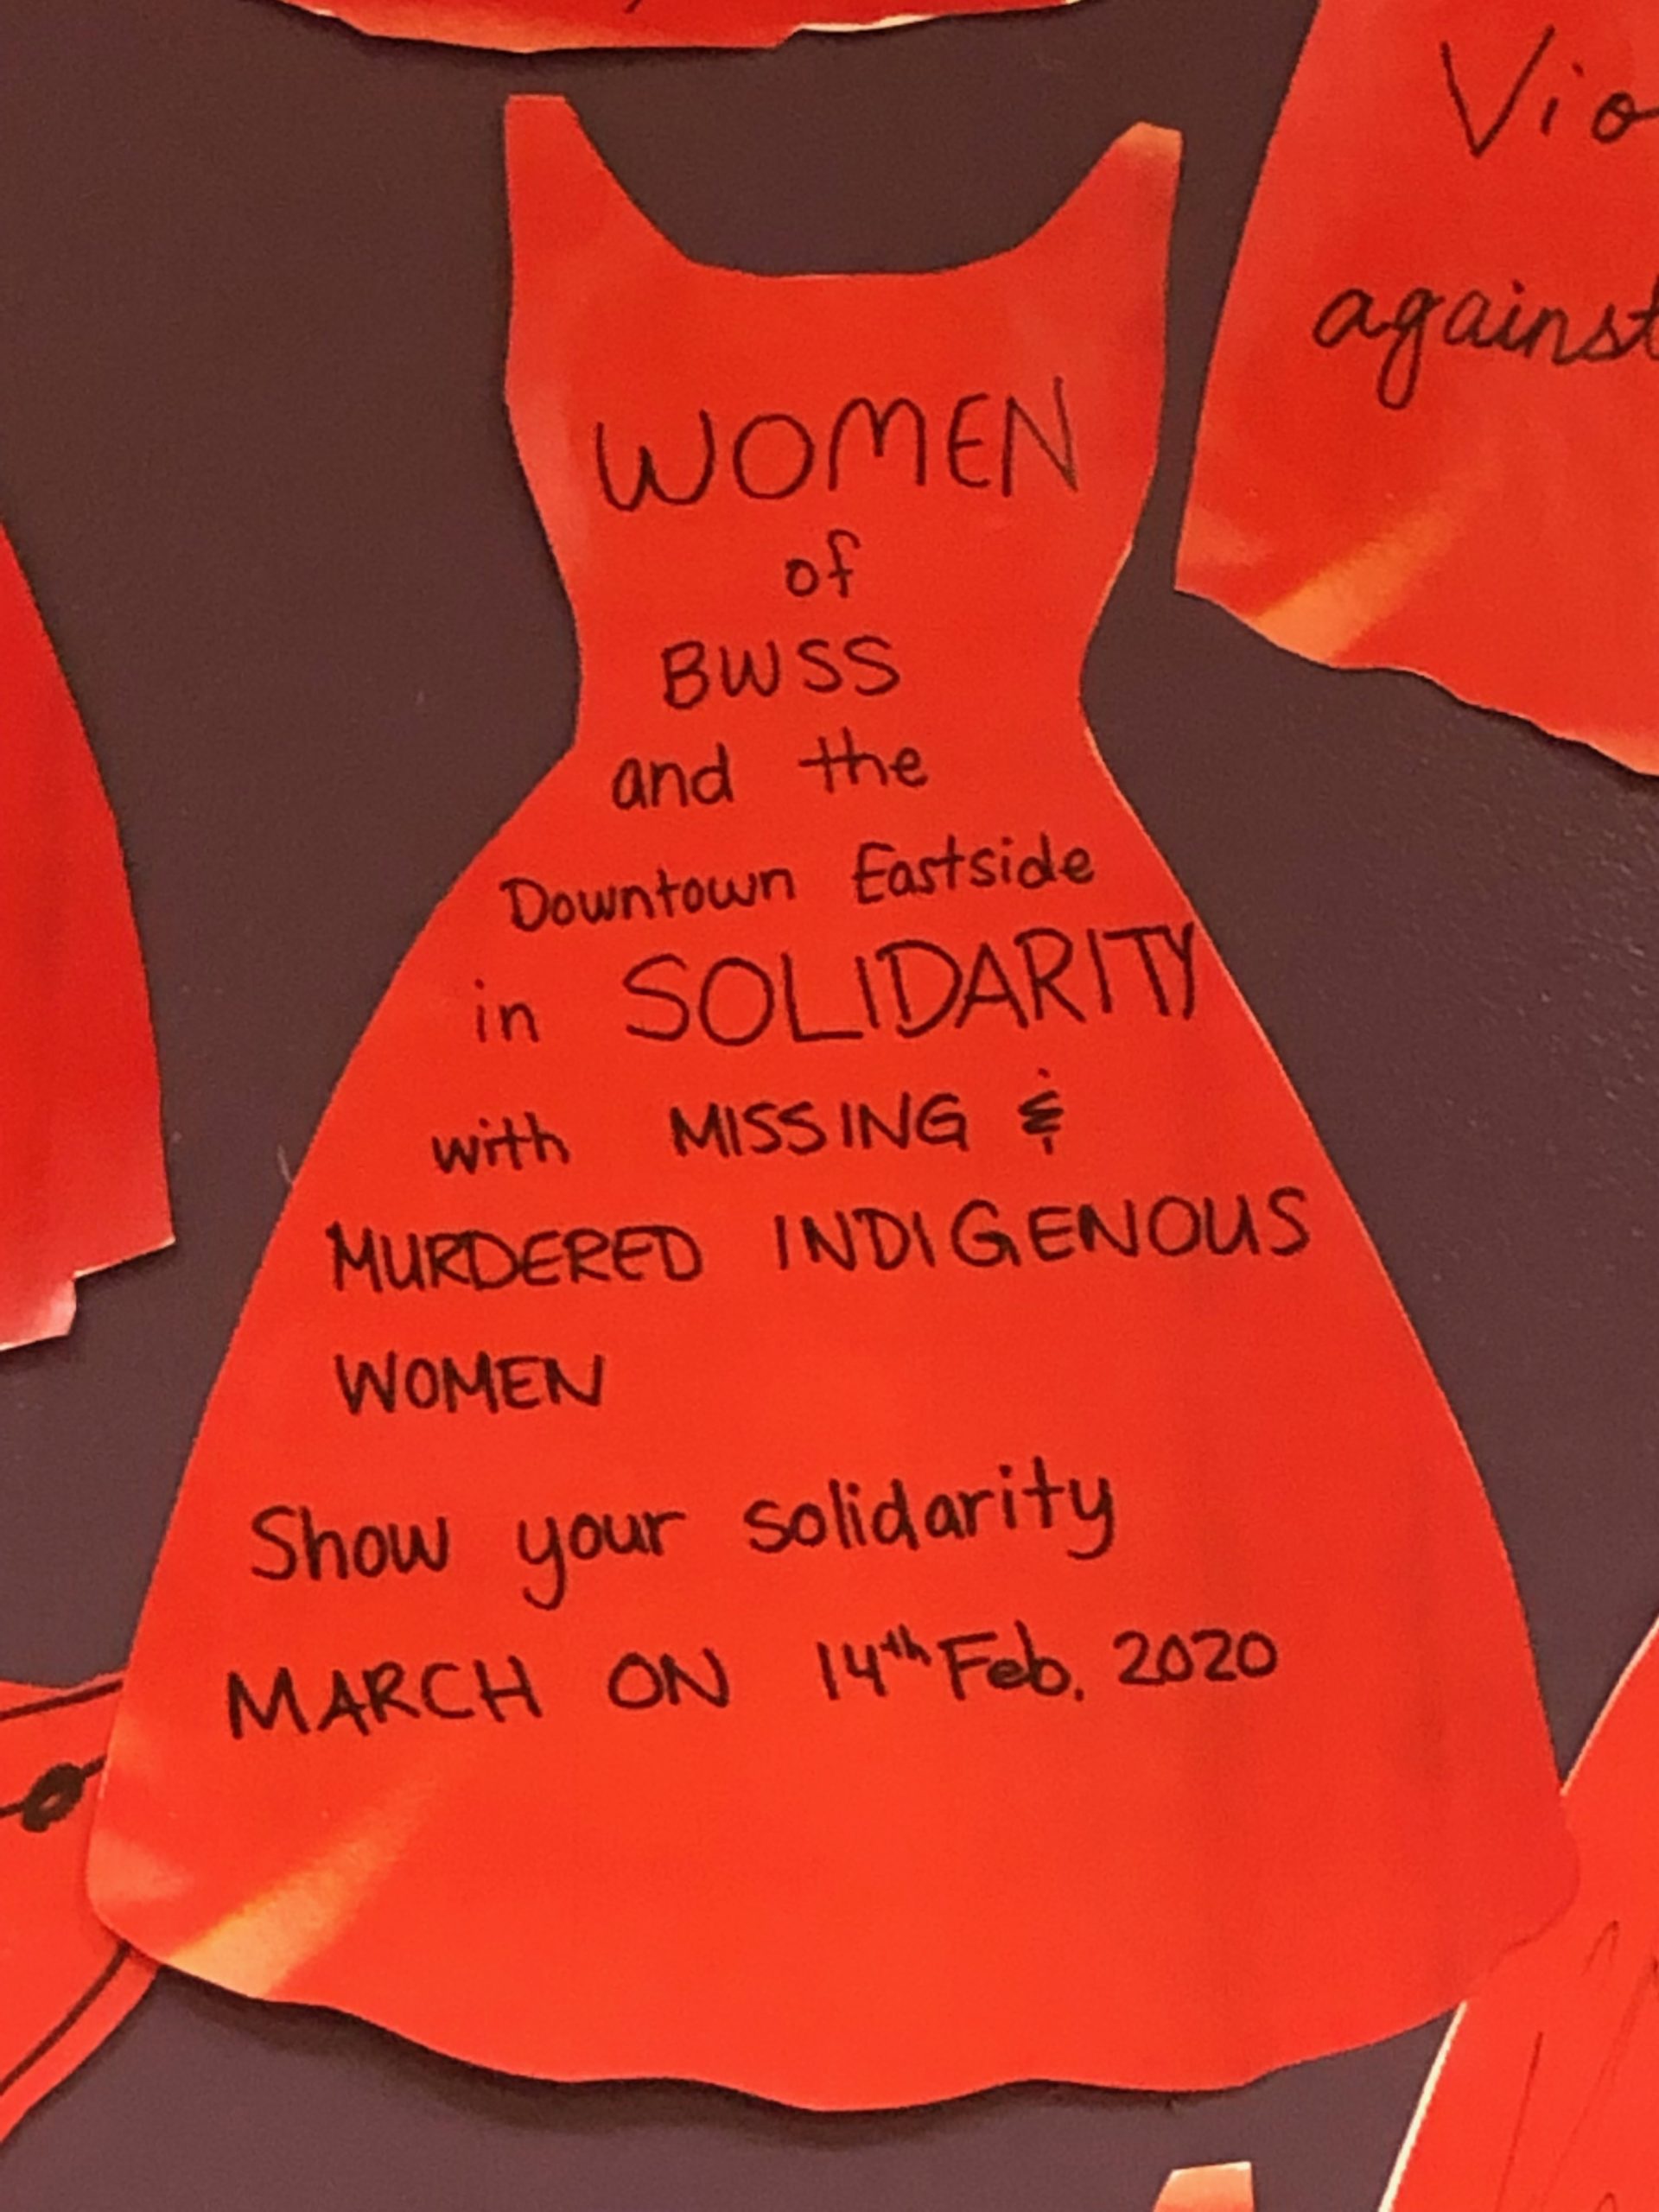 WOMEN
of
BWSS
and the
Downtown Eastside
in SOLIDARITY
with MISSING &
MURDERED INDIGENOUS
WOMEN
Show your solidarity
MARCH ON 14th Feb. 2020
against